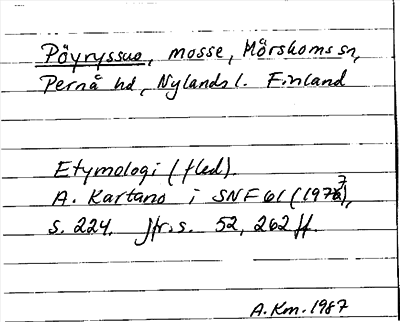 Pöyryssuo, mosse, Mörskoms sn,
Pernå hd, Nylands l. Finland
Etymologi (fled).
A. Kartano i SNF 61 (1977),
s. 224. Jfr. s. 52, 262 ff.
A.Km. 1987